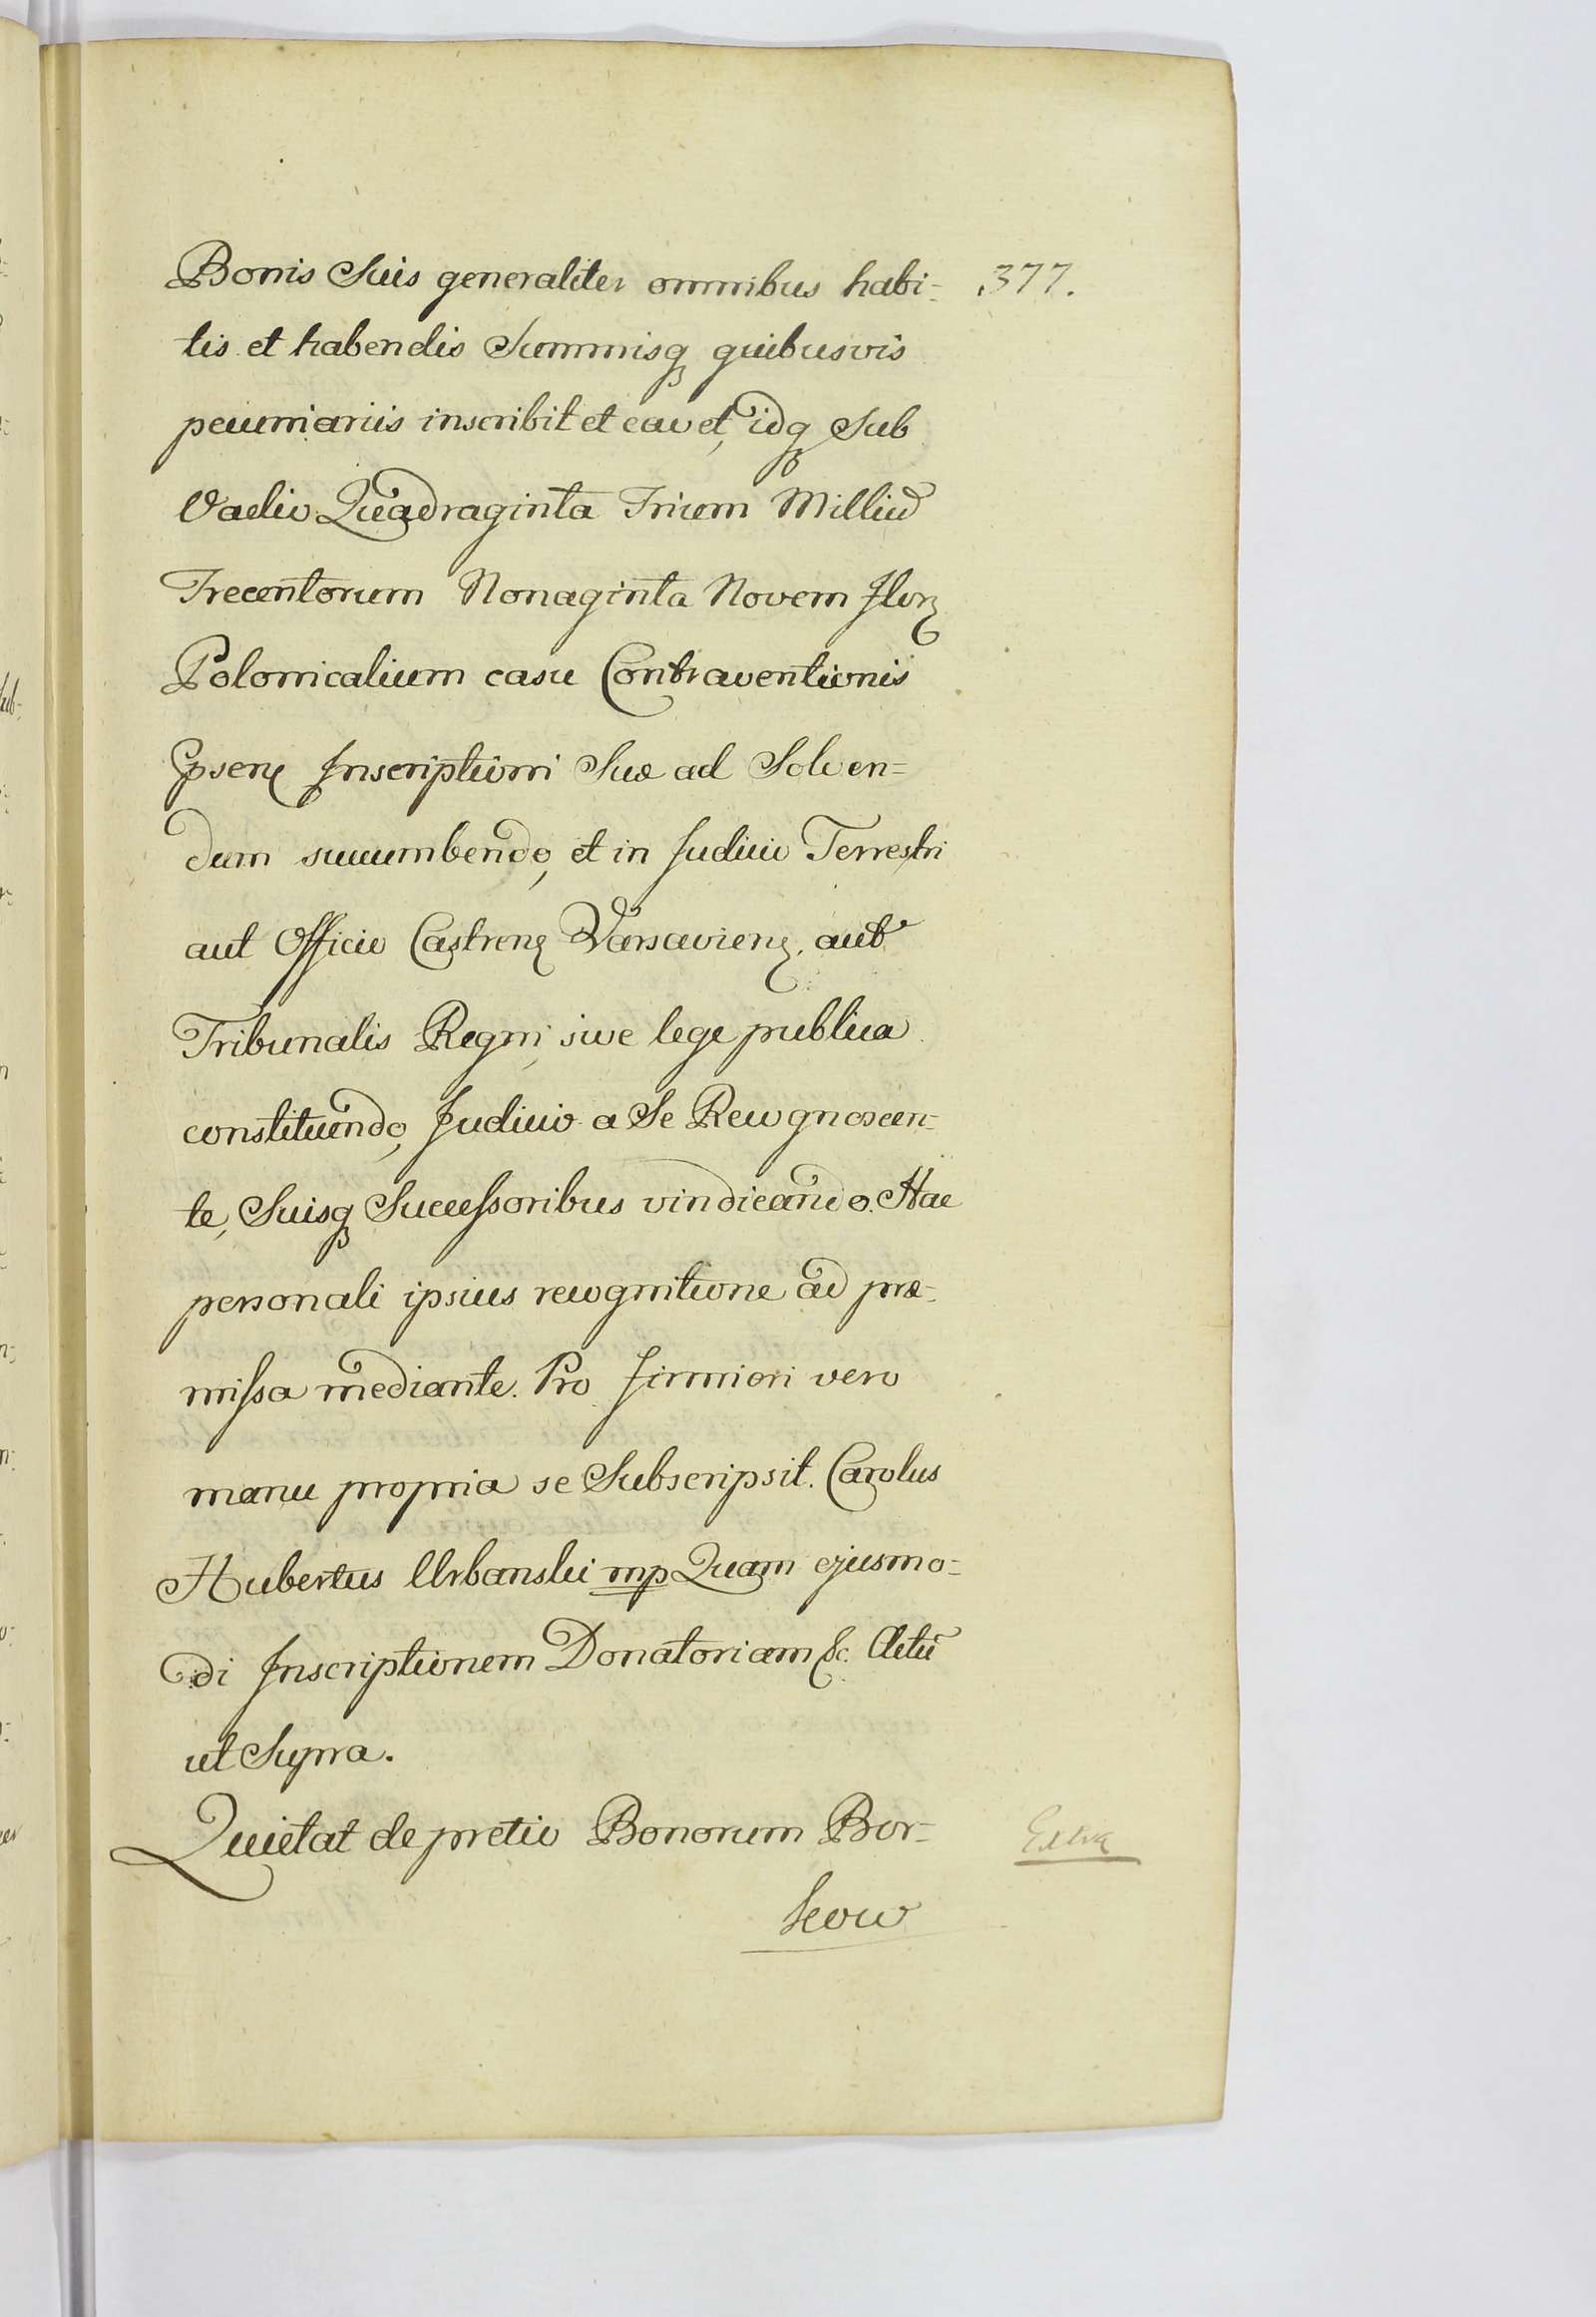 Bonis Suis generaliter omnibus habi= 377.
tis et habendis Summisq quibusvis
pecuniariis inscribit et cavet, idq Sub
Vadio Quadraginta Trium Milliū
Trecentorum Nonaginta Novem Flor
Polonicalium casu Contraventionis
Inscriptioni Suæ ad Solven=
dum succumbendo, et in Judicio Terrestri
aut Officio Castren Varsavien. aut
Tribunalis Regni, sive lege publica
constituendo, Judicio a Se Recognoscen=
te, Suisq Successoribus vindicando. Hac
personali ipsius recognitione ad præ=
missa mediante. Pro firmiori vero
manu propria se Subscripsit. Carolus
Hubertus Urbanski mp Quam ejusmo=
di Inscriptionem Donatoriam &c. Actū
ut Supra.
Quietat de pretio Bonorum Bor=
kow
Extra